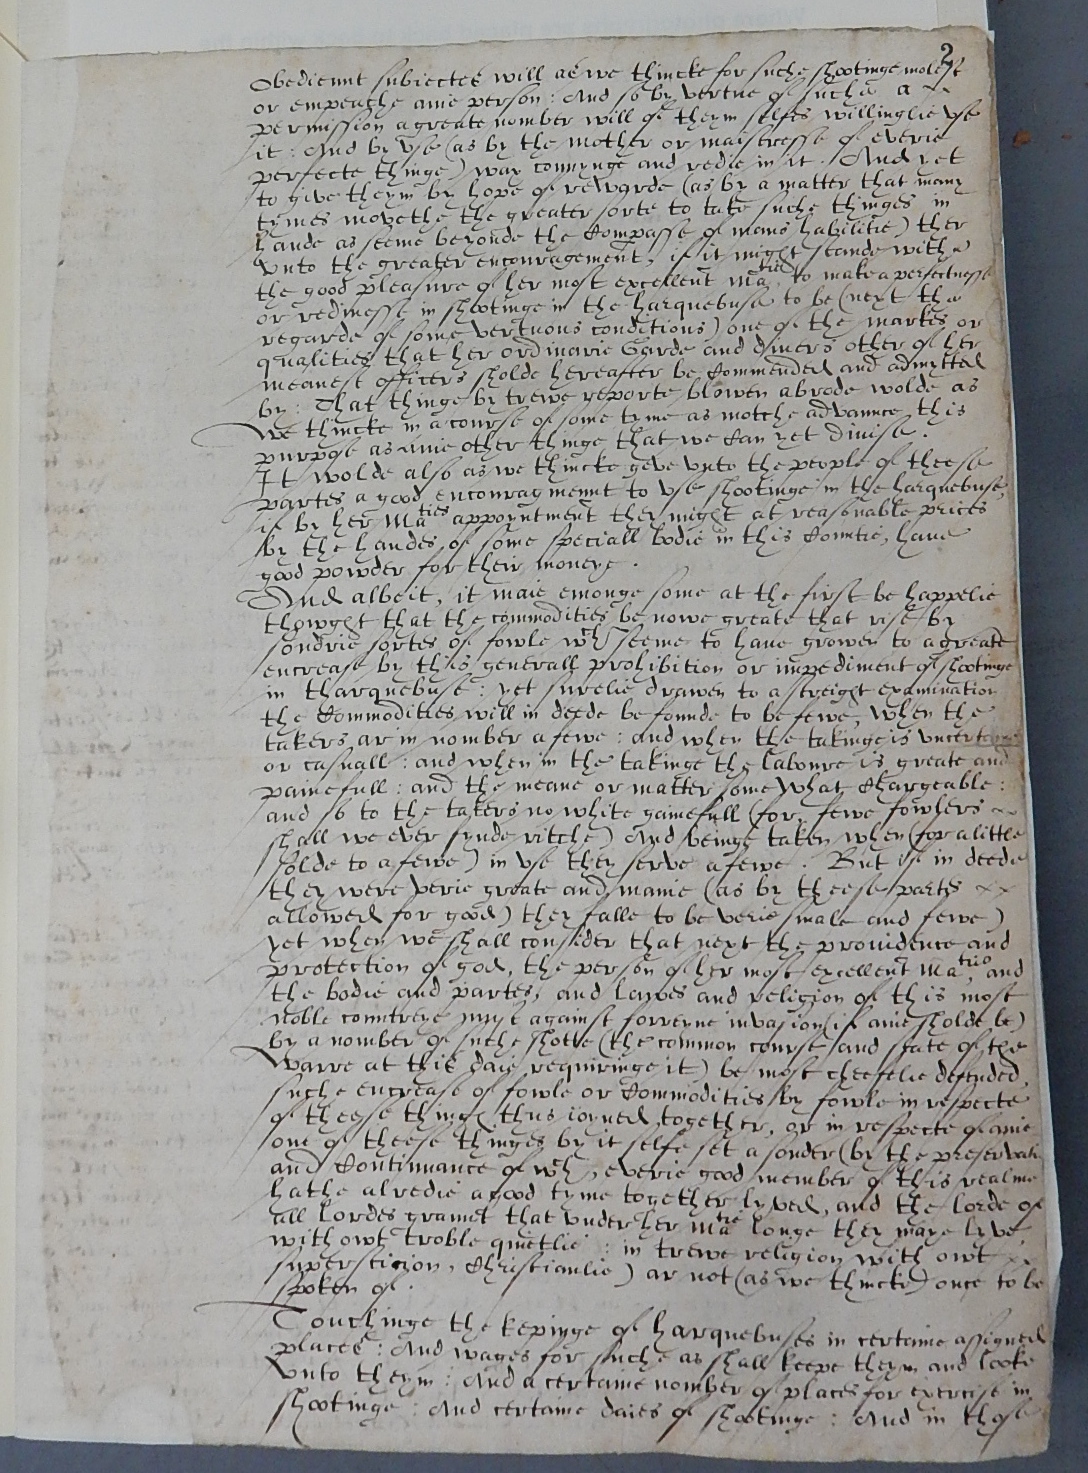 2
obedient subiectes will as we thincke for suche shootinge molest
or empeache anie person : And so by vertue of suche a
permission a greate nomber will of theym selfes willinglie vse
it : And by vse (as by the mother or maistresse of everie
perfecte thinge) wax connynge and redie in it . And yet
to give theym by hope of rewarde (as by a matter that many
tymes movethe the greater sorte to take suche thinges in
hande as seeme beyonde the compasse of mans habilitie) ther
vnto the greater encouragement, if it might stande withe
the good pleasure of her most excellent Matie, to make a perfectnesse
or redinesse in shootinge in the harquebuse to be (next the
regarde of some vertuous conditions) one of the markes or
qualities that her ordinarie Garde and divers other of her
meanest officers sholde hereafter be commended and admytted
by : That thinge by trewe reporte blowen abrode wolde as
we thincke in a course of some tyme as motche advaunce this
purpose as anie other thinge that we can yet divise .
It wolde also as we thincke geve vnto the people of theese
partes a good encouragment to vse shootinge in the harquebuse,
if by her Maties appoyntment they might at reasonable prices
by the handes of some speciall bodie in this Countie, have
good powder for their moneye .
And albeit, it maie emonge some at the first be happelie
thowght that the commodities be nowe greate that rise by
sondrie sortes of fowle wch seeme to have growen to a greate
encrease by this generall prohibition or impediment of shootinge
in tharquebuse : yet surelie drawen to a streight examination
the commodities will in deede be founde to be fewe, when the
takers ar in nomber a fewe : and when the takinge is uncertaine
or casuall : and when in the takinge the laboure is greate and
painefull : and the meane or matter some what chargeable :
and so to the takers no white gainefull (for, fewe fowlers
shall we ever fynde ritche) And beinge taken when (for a little
solde to a fewe) in vse they serve a fewe . But if in deede
they were verie greate and manie (as by theese partes
allowed for good) they falle to be verie smale and fewe)
yet when we shall consider that next the providence and
protection of god, the person of her most excellent Matie, and
the bodie and partes, and lawes and religion of this most
noble countreye must against forreyne invasion (if anie sholde be)
by a nomber of suche shotte (the common course and state of the
warre at this daie requiringe it) be most cheefelie defended,
suche encrease of fowle or commodities by fowle in respecte
of theese thinges thus ioyned together, or in respecte of anie
one of theese thinges by it selfe set a sonder (by the preservation
and continuance of wch, everie good member of this realme
hathe alredie a good tyme together lyved, and the lorde of
all lordes graunt that vnder her Matie longe they maye lyve
with owt troble quietlie : in trewe religion with owt
superstition, Christianlie) ar not (as we thincke) once to be
spoken of .
Touchinge the kepinge of harquebuses in certaine assigned
places : And wages for suche as shall keepe theym and looke
vnto theym : And a certaine nomber of places for exercise in
shootinge : And certaine daies of shootinge : And in those